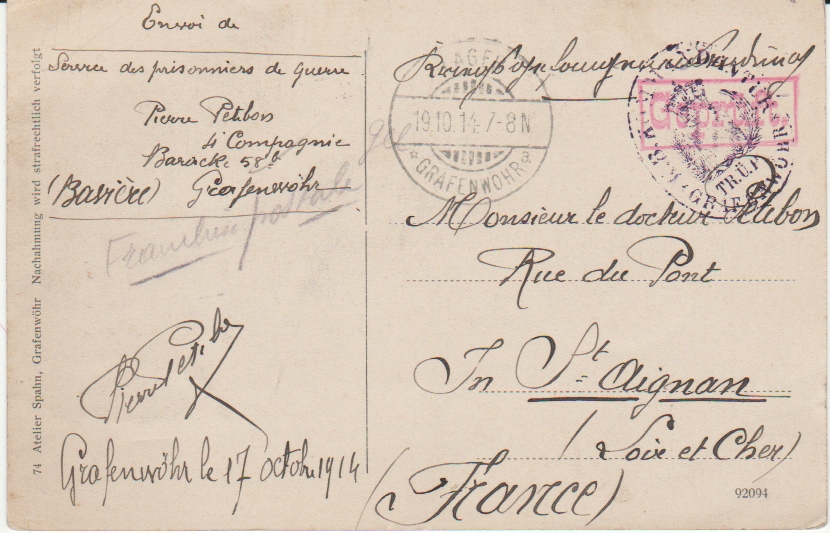 Envoi de
Service des prisonniers de Guerre
Pierre Petibon
4e Compagnie
Baracke 58b
(Bavière) Grafenwöhr
Franchise postale
Pierre Petibon
Grafenwöhr le 17 octobre 1914
74 Atelier Spahn, Grafenwöhr Nachahmung wird strafrechtlich verfolgt
LAGER
19.10.14.7-8N
* GRAFENWÖHR a
Geprüft.
TR.ÜB.
GRAFENWÖHR
Monsieur le docteur Petibon
Rue du Pont
In St Aignan
(Loir et Cher)
(France)
92094